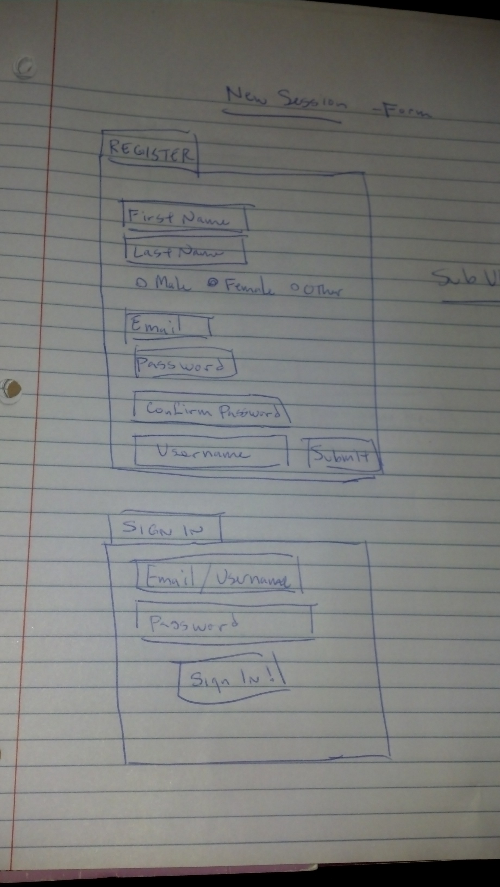 New Session - Form
REGISTER
First Name
Last Name
Male Female Other
Sub
Email
Password
Confirm Password
Username Submit
SIGN IN
Email / Username
Password
Sign In!